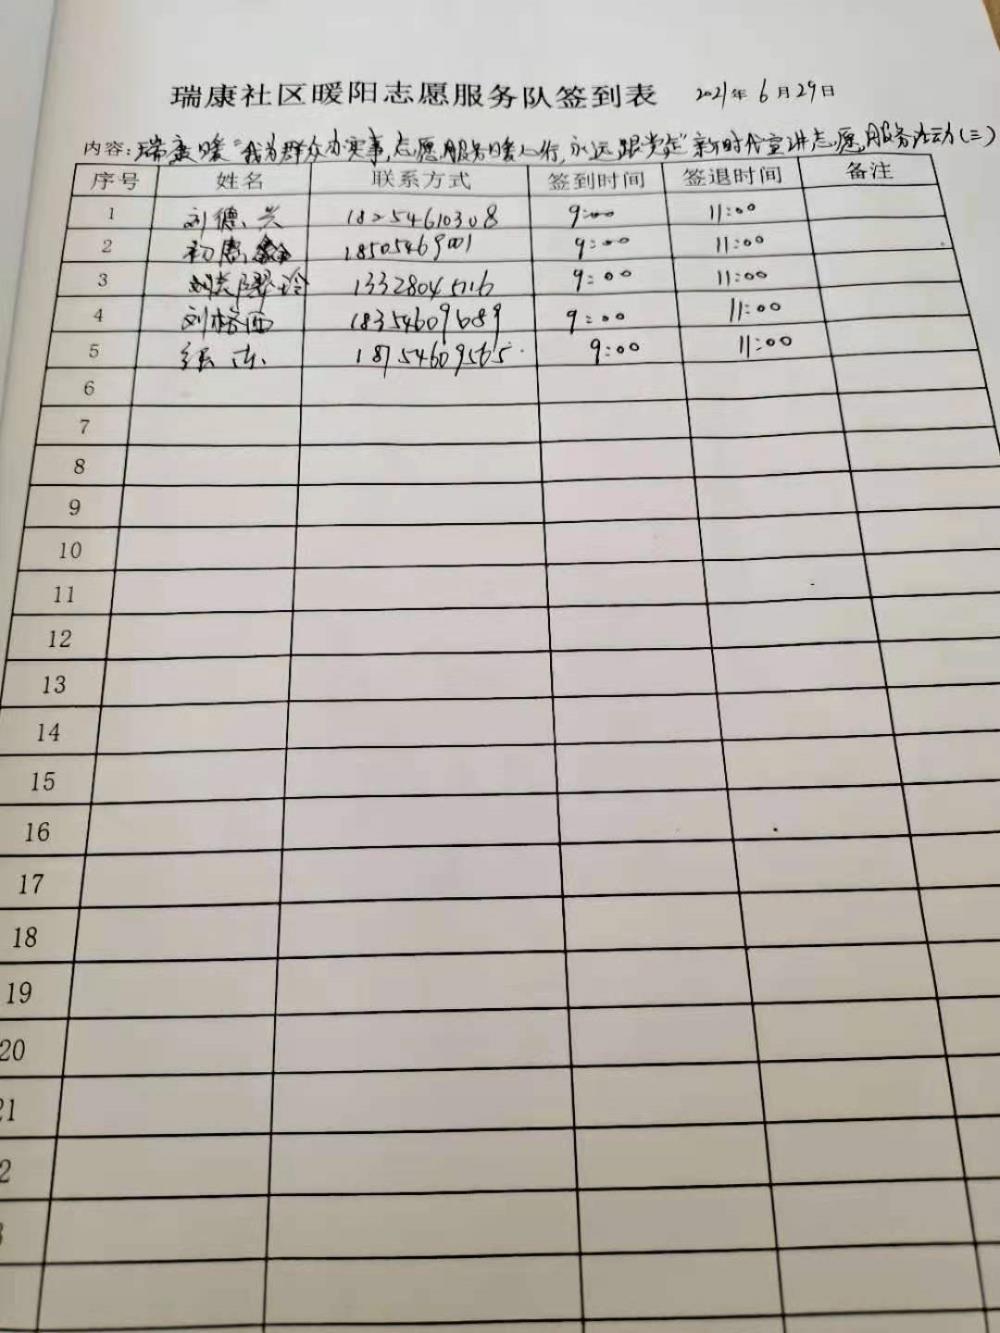 瑞康社区暖阳志愿服务队签到表 2021年6月29日
内容:瑞康暖"我为群众办实事,志愿服务暖人心,永远跟党走"新时代宣讲志愿服务活动(三)
序号 姓名 联系方式 签到时间 签退时间 备注
1 刘德兴 18254610308 9:00 11:00
2 18505469001 9:00 11:00
3 13328045116 9:00 11:00
4 刘格西 18354609689 9:00 11:00
5 18754609565 9:00 11:00
6
7
8
9
10
11
12
13
14
15
16
17
18
19
20
21
2
3